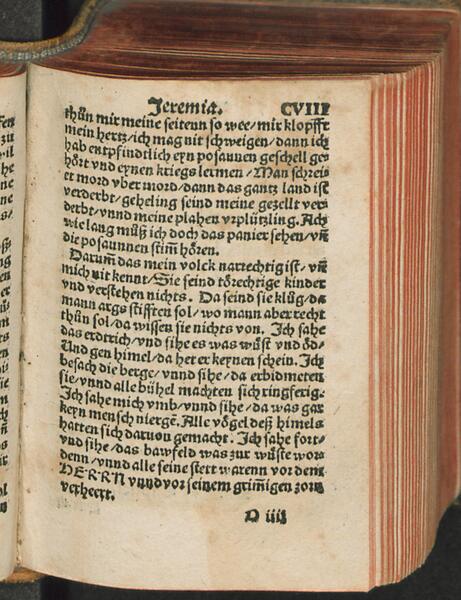 Jeremia. CVIII
thůn mir meine seitenn so wee/mir klopfft
mein hertz/ich mag nit schweigen/dann ich
hab entpfindtlich eyn posaunen geschell ge⸗
hört vnd eynen kriegs lermen/Man schrei⸗
et mord vber mord/dann das gantz land ist
verderbt/geheling seind meine gezellt ver⸗
derbt/vnnd meine plahen vrplützling. Ach
wie lang můß ich doch das panier sehen/vñ
die posaunnen stim̃ hören.
Darum̃ das mein volck narrechtig ist/vñ
mich nit kennt/Sie seind törechtige kinder
vnd verstehen nichts. Da seind sie klůg/da
mann args stifften sol/wo mann aber recht
thůn sol/da wissen sie nichts von. Ich sahe
das erdtrich/vnd sihe es was wüst vnd öd⸗
Und gen himel/da het er keynen schein. Ich
besach die berge/vnnd sihe/da erbidmeten
sie/vnnd alle bühel machten sich ringferig⸗
Ich sahe mich vmb/vnnd sihe/da was gar
keyn mensch niergẽ. Alle vögel deß himels
hatten sich daruon gemacht. Ich sahe fort⸗
vnd sihe/das bawfeld was zur wüste wor⸗
denn/vnnd alle seine stett warenn vor dem
HERRN vnnd vor seinem grim̃igen zorn
verheert.
D iiij